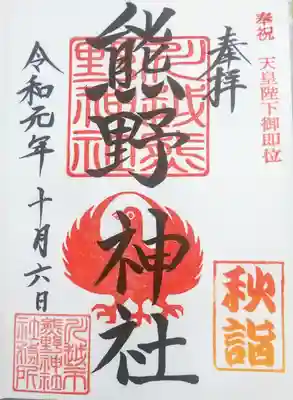 奉祝 天皇陛下御即位
奉拝
秋詣
熊野神社
川越熊野神社
令和元年十月六日
川越市
熊野神社
社務所